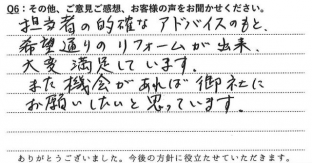 Q6：その他、ご意見ご感想、お客様の声をお聞かせください。
担当者の的確なアドバイスのもと、
希望通りのリフォームが出来、
大変満足しています。
また機会があれば御社に
お願いしたいと思っています。
ありがとうございました。今後の方針に役立たせていただきます。